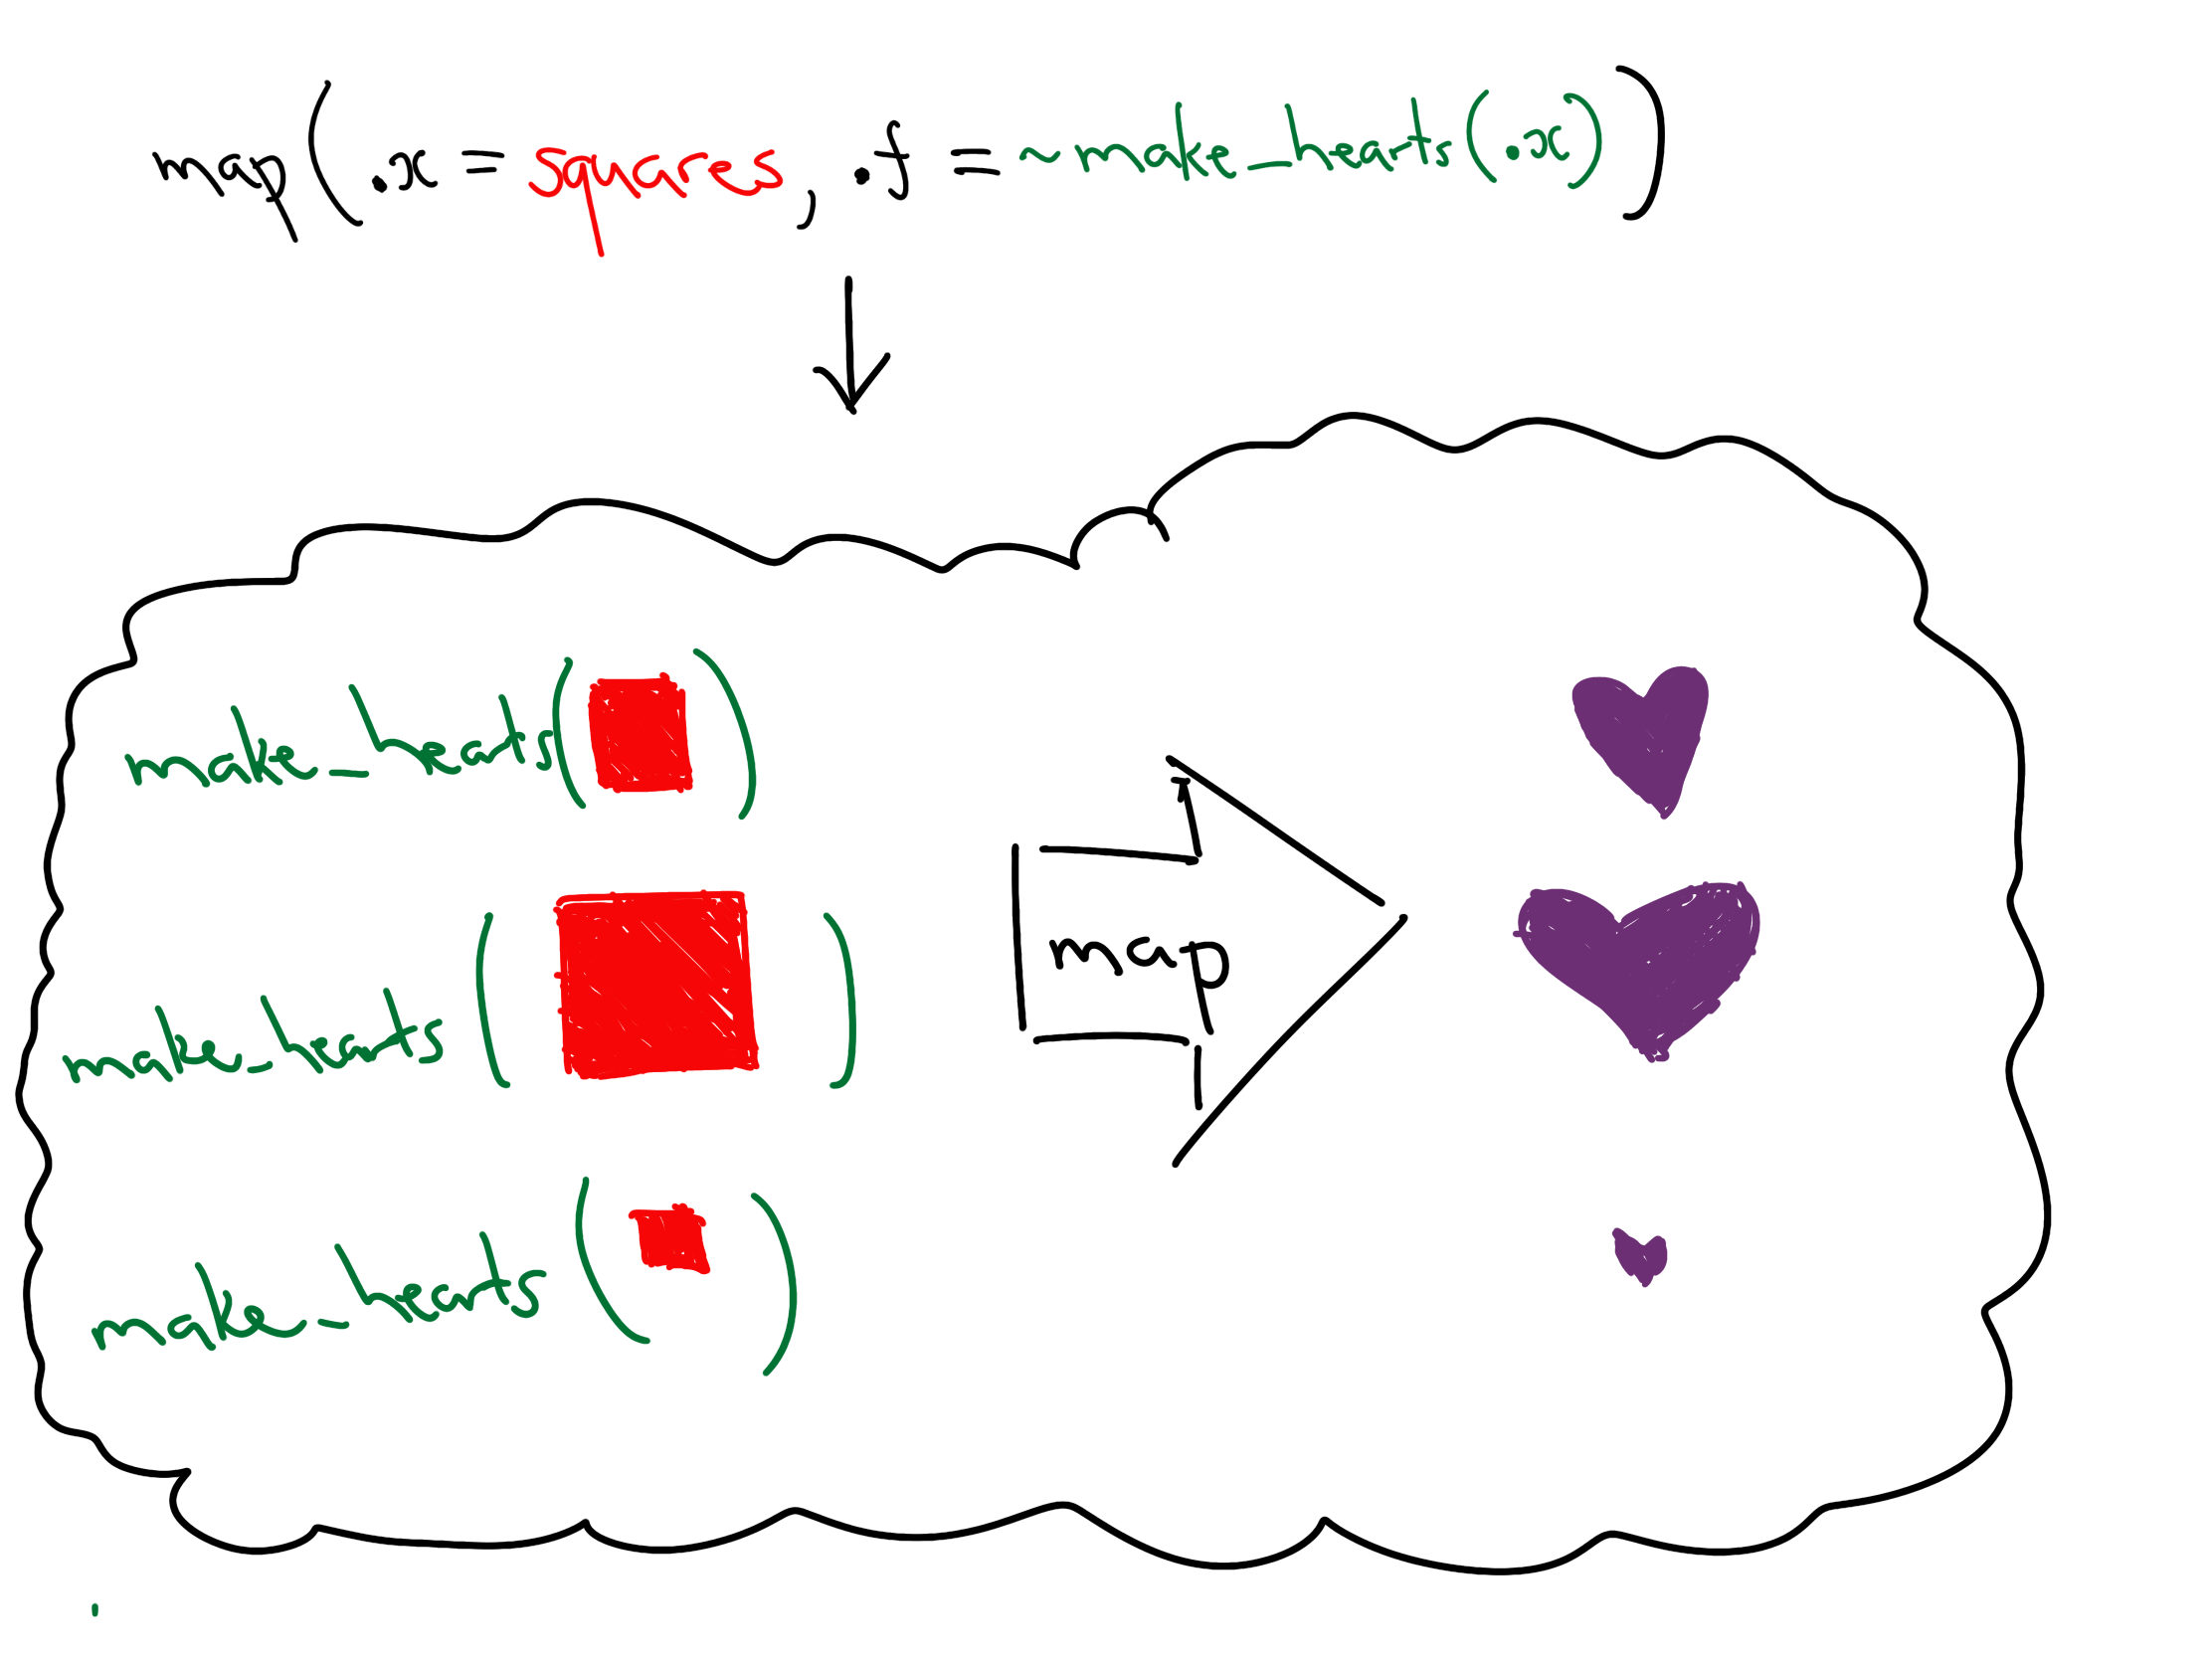 map(.x = squares, .f = ~ make_hearts(.x))
make_hearts( )
make_hearts( )
map
make_hearts( )